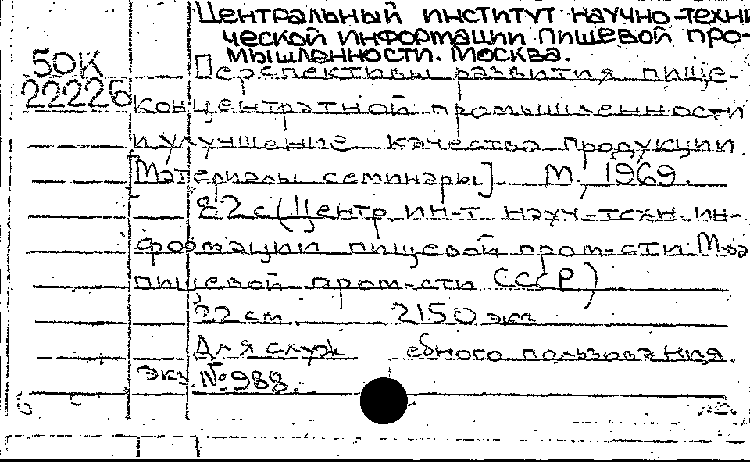 Центральный институт научно-техни-
ческой информации пищевой про-
мышленности. Москва.
50К
22226
Перспективы развития пище-
концентратной промышленности
и улучшение качества продукции.
[Материалы семинары] М., 1969.
82 с (Центр. ин-т науч-техн. ин-
формации пищевой пром-сти М-ва
пищевой пром-сти СССР)
22 см. 2150 экз
Для служебного пользования.
экз №988.